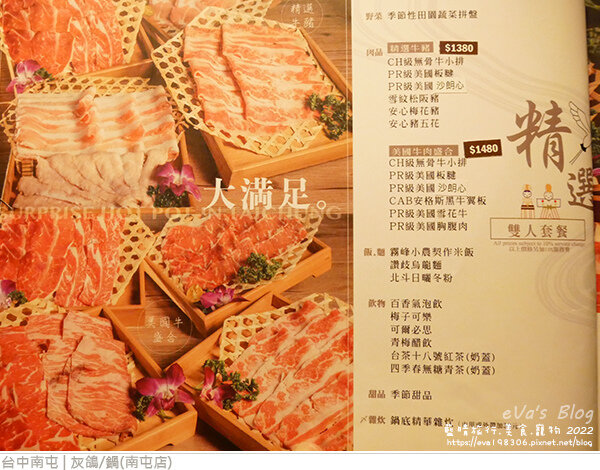 精選
牛豬
大滿足。
SURPRISE HOT POT IN TAICHUNG
美國牛
盛合
野菜 季節性田園蔬菜拼盤
肉品 精選牛豬 $1380
CH級無骨牛小排
PR級美國板腱
PR級美國沙朗心
雪紋松阪豬
安心梅花豬
安心豬五花
美國牛肉盛合 $1480
CH級無骨牛小排
PR級美國板腱
PR級美國沙朗心
CAB安格斯黑牛翼板
PR級美國雪花牛
PR級美國胸腹肉
飯.麵 霧峰小農契作米飯
讚岐烏龍麵
北斗日曬冬粉
飲物 百香氣泡飲
梅子可樂
可爾必思
青梅醋飲
台茶十八號紅茶(奶蓋)
四季春無糖青茶(奶蓋)
甜品 季節甜品
〆雜炊 鍋底精華雜炊
精選
雙人套餐
All prices subject to 10% service charge
以上價格另加10%服務費
eVa's Blog
藍晴旅行.美食.寵物 2022
https://eva198306.pixnet.net/blog
台中南屯 | 灰鴿/鍋(南屯店)